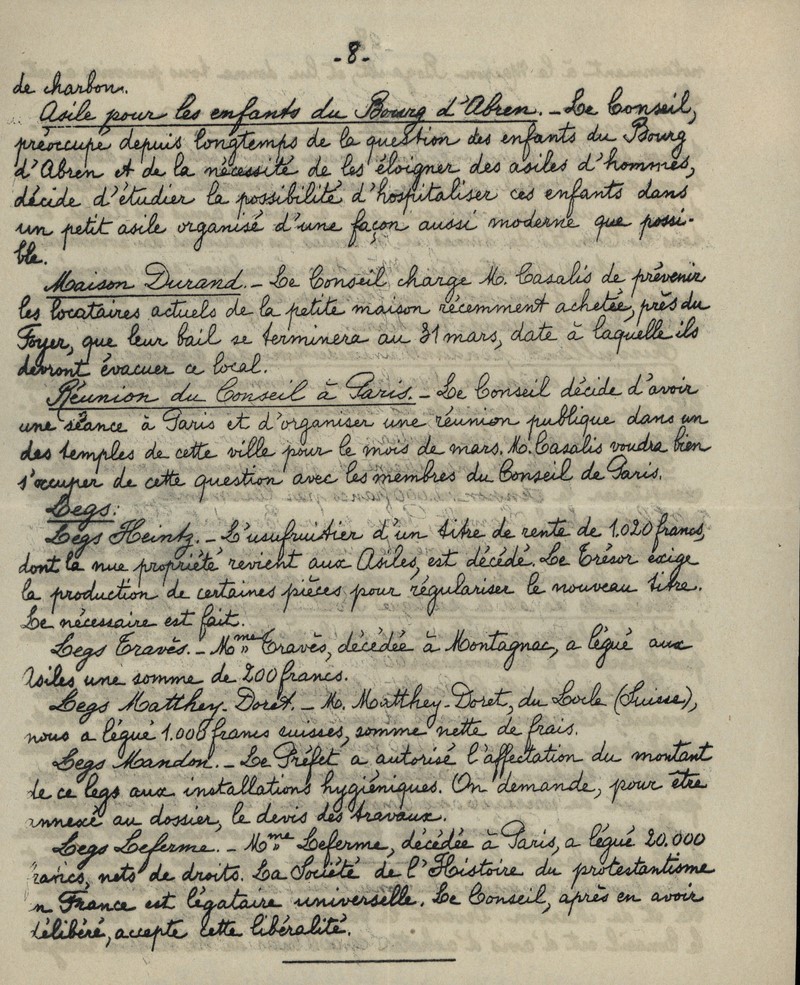 -8-
de charbon.
Asile pour les enfants du Bourg d'Abren. - Le Conseil,
préoccupé depuis longtemps de la question des enfants du Bourg
d'Abren et de la nécessité de les éloigner des asiles d'hommes,
décide d'étudier la possibilité d'hospitaliser ces enfants dans
un petit asile organisé d'une façon aussi moderne que possi-
ble.
Maison Durand. - Le Conseil charge M. Casalis de prévenir
les locataires actuels de la petite maison récemment achetée, près du
Foyer, que leur bail se terminera au 31 mars, date à laquelle ils
devront évacuer ce local.
Réunion du Conseil à Paris. - Le Conseil décide d'avoir
une séance à Paris et d'organiser une réunion publique dans un
des temples de cette ville pour le mois de mars. M. Casalis voudra bien
s'occuper de cette question avec les membres du Conseil de Paris.
Legs:
Legs Heintz. - L'usufruitier d'un titre de rente de 1.020 francs,
dont la nue propriété revient aux Asiles, est décédé. Le Trésor exige
la production de certaines pièces pour régulariser le nouveau titre.
Le nécessaire est fait.
Legs Travès. - Mme Travès, décédée à Montagnac, a légué aux
Asiles une somme de 200 francs.
Legs Matthey-Doret. - M. Matthey-Doret, du Locle (Suisse),
nous a légué 1.000 francs suisses, somme nette de frais.
Legs Mandon. - Le Préfet a autorisé l'affectation du montant
de ce legs aux installations hygiéniques. On demande, pour être
annexé au dossier, le devis des travaux.
Legs Leferme. - Mme Leferme, décédée à Paris, a légué 20.000
francs, nets de droits. La Société de l'Histoire du protestantisme
en France est légataire universelle. Le Conseil, après en avoir
délibéré, accepte cette libéralité.